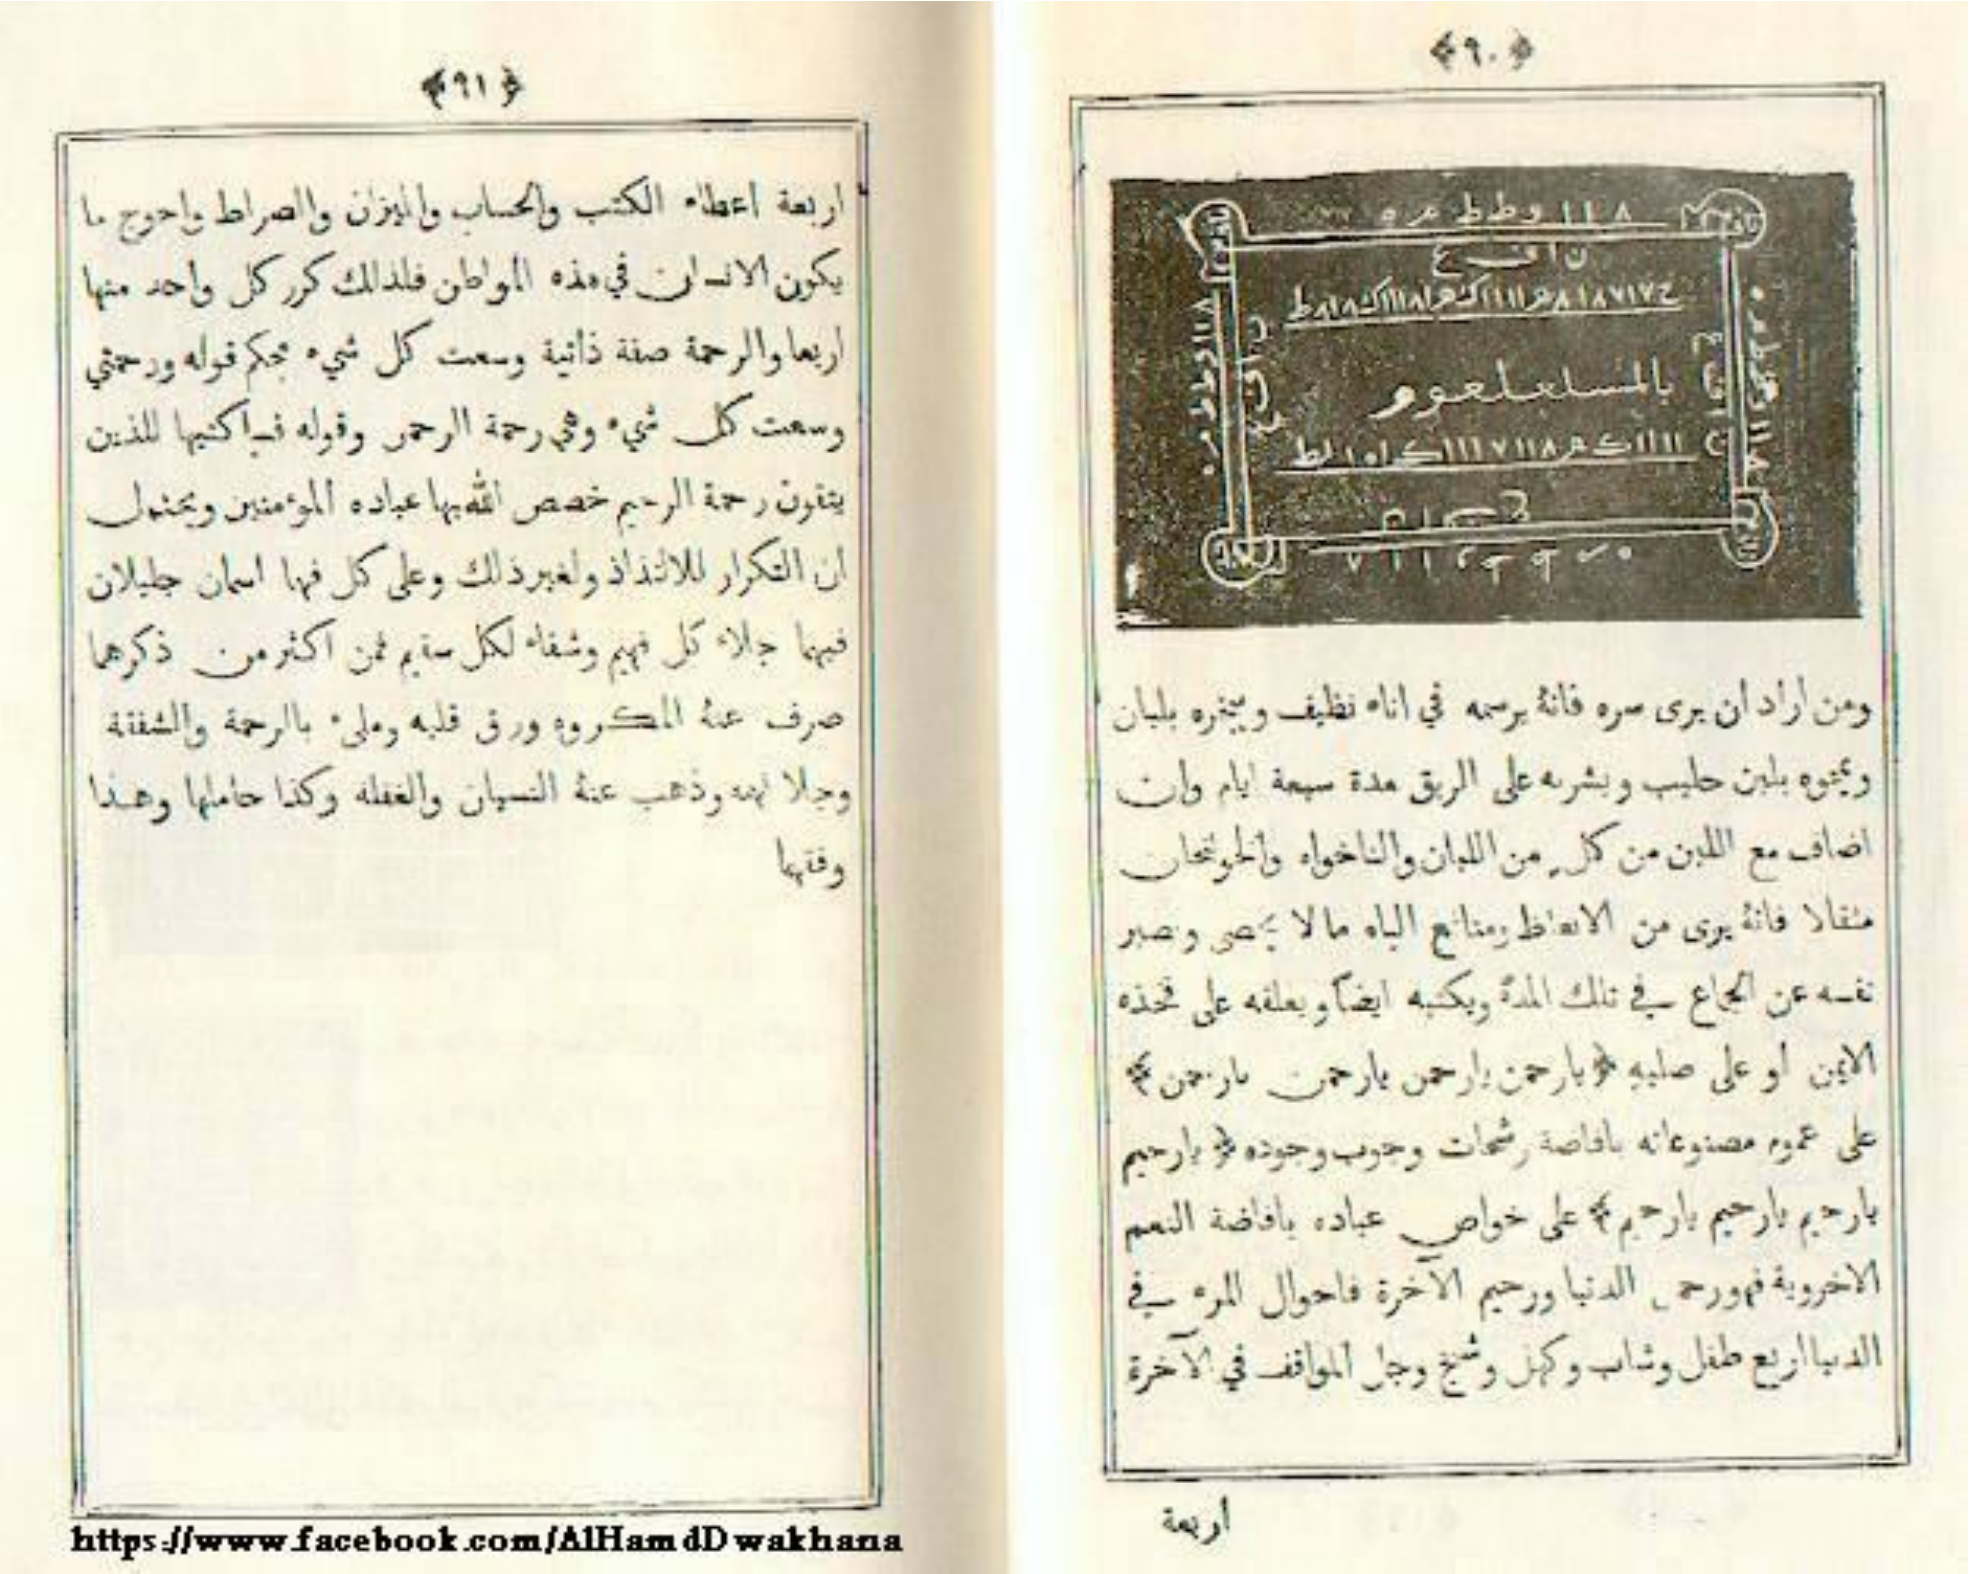 ﴿٩٠﴾
ن ا ف ع
ومن أراد أن يرى سره فانهُ يرسمه في اناء نظيف ويبخره بلبان
ويمحوه بلبن حليب ويشربه على الريق مدة سبعة ايام وان
اضاف مع اللبن من كلٍ من اللبان والناخواه والخولنجان
مثقالا فانهُ يرى من الانعاظ ومنافع الباه ما لا يحصى وصبر
نفسه عن الجماع في تلك المدة ويكتبه ايضاً ويعلقه على فخذه
الايمن أو على صلبهِ ﴿يارحمن يارحمن يارحمن يارحمن﴾
على عموم مصنوعاته بافاضة رشحات وجوب وجوده ﴿يارحيم
يارحيم يارحيم يارحيم﴾ على خواص عباده بافاضة النعم
الاخروية فهو رحمن الدنيا ورحيم الآخرة فاحوال المرء في
الدنيا اربع طفل وشاب وكهل وشيخ وجل المواقف في الآخرة
اربعة
﴿٩١﴾
اربعة اعطاء الكتب والحساب والميزان والصراط واحوج ما
يكون الانسان في هذه المواطن فلذالك كرر كل واحد منها
اربعا والرحمة صفة ذاتية وسعت كل شيء بحكم قوله ورحمتي
وسعت كل شيء وهي رحمة الرحمن وقوله فساكتبها للذين
يتقون رحمة الرحيم خصص الله بها عباده المؤمنين ويحتمل
أن التكرار للالتذاذ ولغير ذلك وعلى كل فهما اسمان جليلان
فيهما جلاء كل فهيم وشفاء لكل سقيم فمن اكثر من ذكرهما
صرف عنهُ المكروه ورق قلبه وملىء بالرحمة والشفقة
وجلا فهمه وذهب عنهُ النسيان والغفله وكذا حاملها وهذا
وفقهما
https://www.facebook.com/AlHamdDwakhana